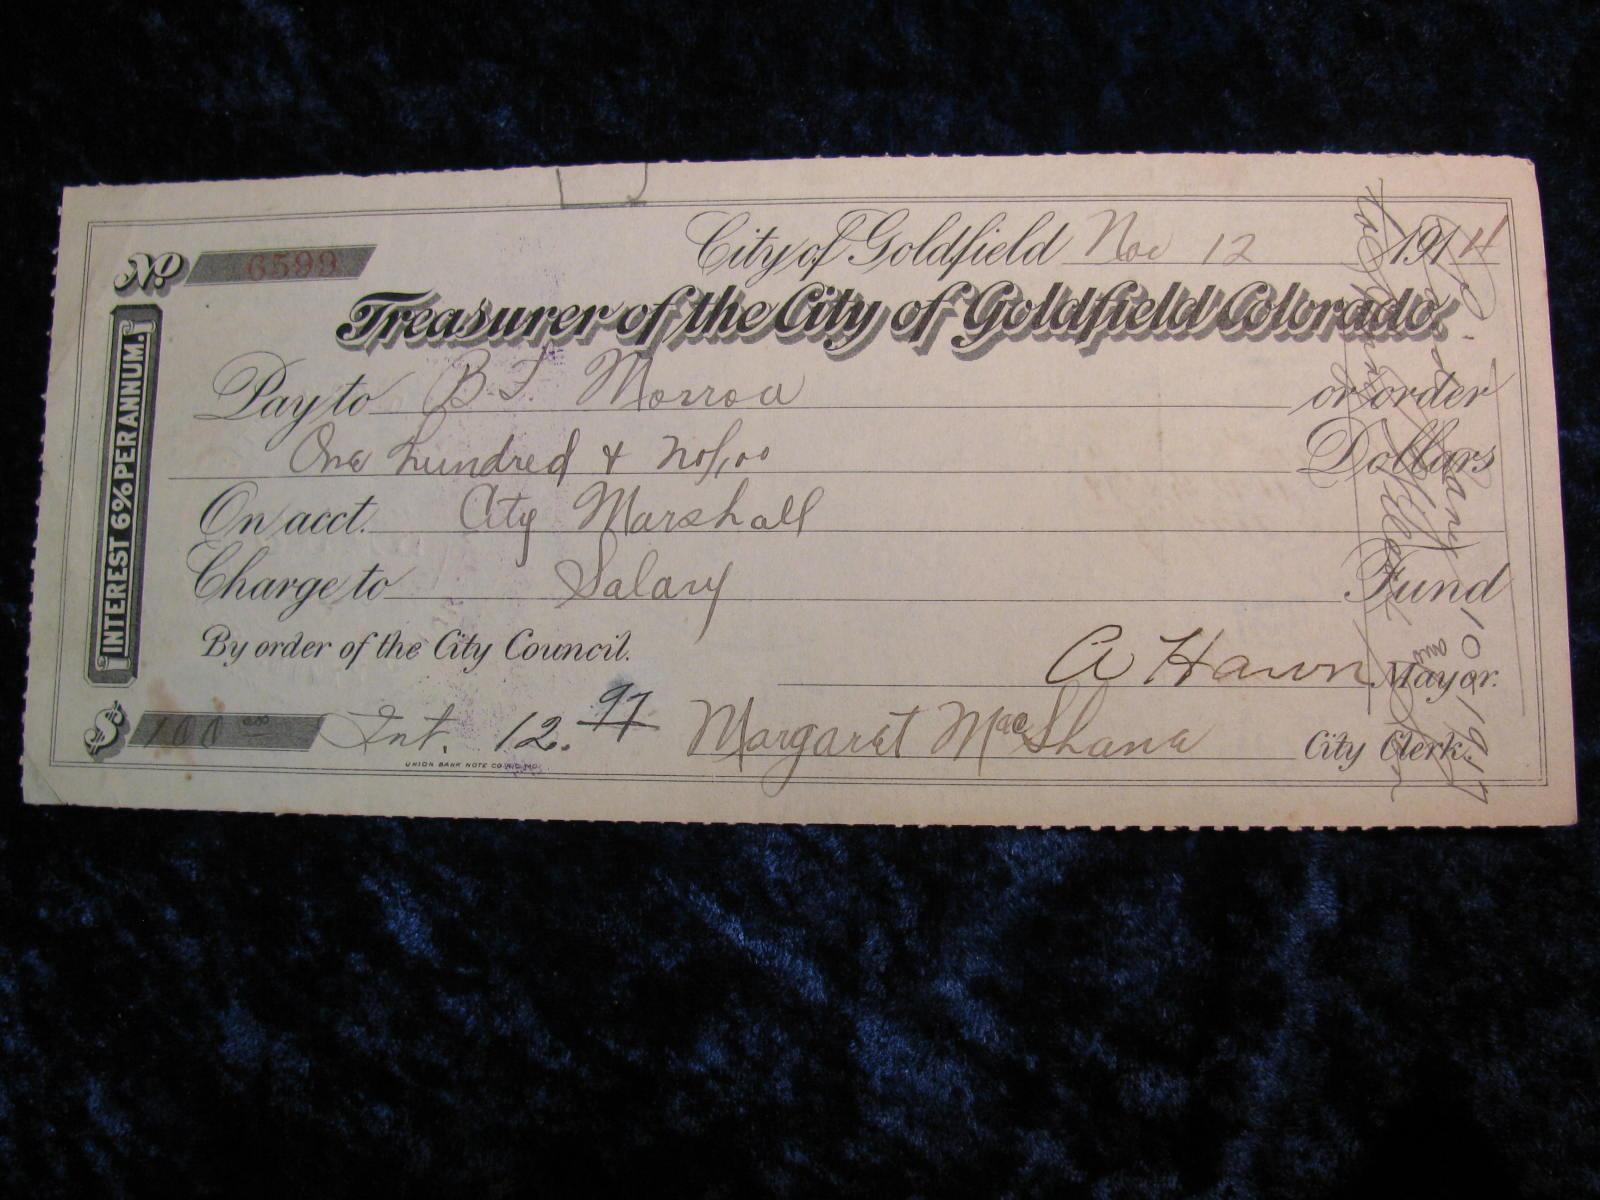 City of Goldfield Nov 12 1914
No 6599
Treasurer of the City of Goldfield Colorado.
INTEREST 6% PER ANNUM.
Pay to B. F. Morroa or order
One hundred & no/100 Dollars
On acct. City Marshall
Charge to Salary Fund
By order of the City Council.
A Hawn Mayor.
$ 100 00 Int. 12. 97 Margaret MacShane City Clerk.
UNION BANK NOTE CO. K.C. MO.
January 10 1917